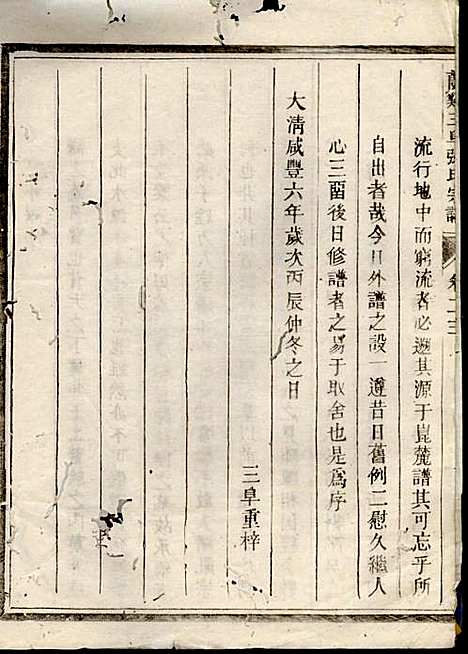 三阜張氏宗譜
卷二三
流行地中而窮流者必遡其源于崑麓譜其可忘乎所
自出者哉今日外譜之設一遵昔日舊例二慰久繼人
心三留後日修譜者之易于取舍也是為序
大清咸豐六年歲次丙辰仲冬之日
三阜重梓